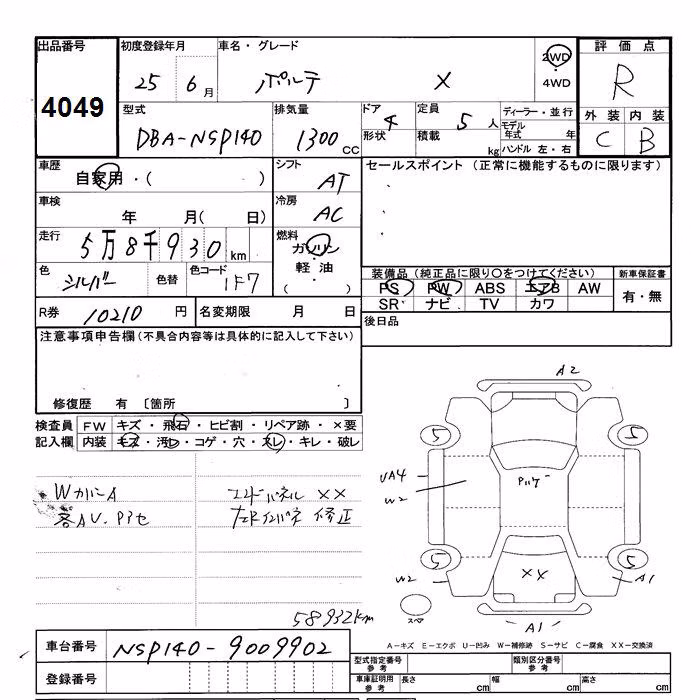 出品番号 初度登録年月 車名・グレード 評価点
4049 25 6月 ポルテ X 2WD・4WD R
型式 排気量 ドア形状 定員 積載 ディーラー・並行 外装 内装
DBA-NSP140 1300 CC 4 5人 kg モデル年式 年 ハンドル 左・右 C B
車歴 自家用・( ) シフト AT セールスポイント (正常に機能するものに限ります)
車検 年 月( 日) 冷房 AC
走行 5万8千930 km 燃料 ガソリン・軽油・( )
色 シルバー 色替 色コード 1F7 装備品(純正品に限り○をつけてください) 新車保証書
PS PW ABS エアB AW 有・無
SR ナビ TV カワ
R券 10210 円 名変期限 月 日 後日品
注意事項申告欄(不具合内容等は具体的に記入して下さい)
修復歴 有 〔箇所 〕
検査員 FW キズ・飛石・ヒビ割・リペア跡・×要
記入欄 内装 キズ・汚レ・コゲ・穴・スレ・キレ・破レ
WカバーA エンドパネル ××
各AU.Pアセ 修正
A2
5 5
UA4
W2
5 5
W2 ×× A1
スペア
A1
58932km
A-キズ E-エクボ U-凹み W-補修跡 S-サビ C-腐食 XX-交換済
車台番号 NSP140-9009902
型式指定番号 参考 類別区分番号 参考
登録番号 車庫証明用 参考 長さ cm 幅 cm 高さ cm